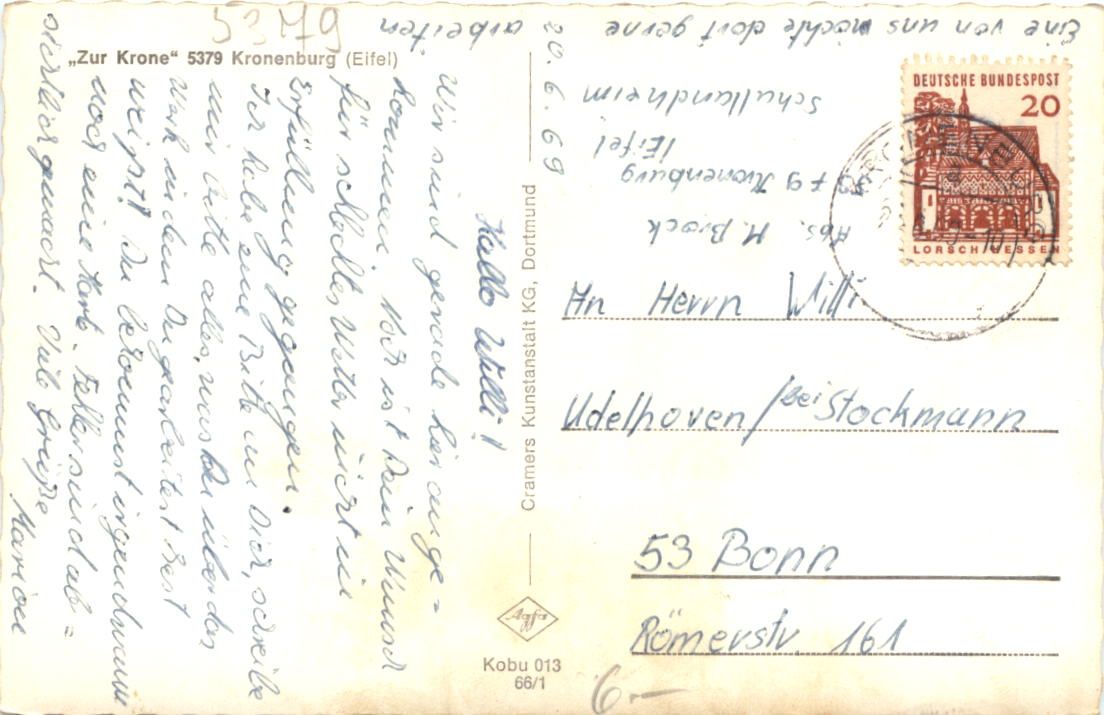 53779
„Zur Krone“ 5379 Kronenburg (Eifel)
Hallo Willi!
Wir sind gerade hier ange=
kommen. Noch ist Dein Wunsch
für schlechtes Wetter nicht in
Erfüllung gegangen.
Ich habe eine Bitte an Dich, schreibe
mir bitte alles, was Du über das
Werk in dem Du gearbeitet hast
weißt! Du bekommst irgendwann
noch eine Karte. Fehler sind ab=
sichtlich gemacht. Viele Grüße
Marion
Eine von uns möchte dort gerne
arbeiten
20. 6. 69
Abs. M. Brock
5379 Kronenburg
/Eifel
Schullandheim
Cramers Kunstanstalt KG, Dortmund
DEUTSCHE BUNDESPOST
20
LORSCH/HESSEN
An Herrn Willi
Udelhoven / bei Stockmann
53 Bonn
Römerstr. 161
Agfa
Kobu 013
66/1
6.—